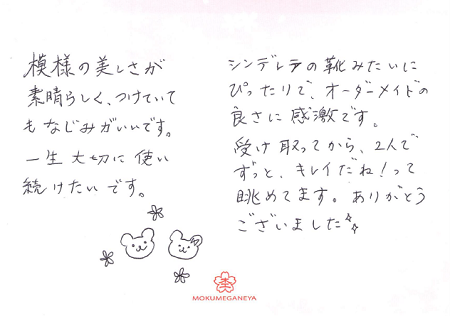 模様の美しさが
素晴らしく、つけていて
もなじみがいいです。
一生大切に使い
続けたいです。
シンデレラの靴みたいに
ぴったりで、オーダーメイドの
良さに感激です。
受け取ってから、2人で
ずっと、キレイだね!って
眺めてます。ありがとう
ございました
MOKUMEGANEYA